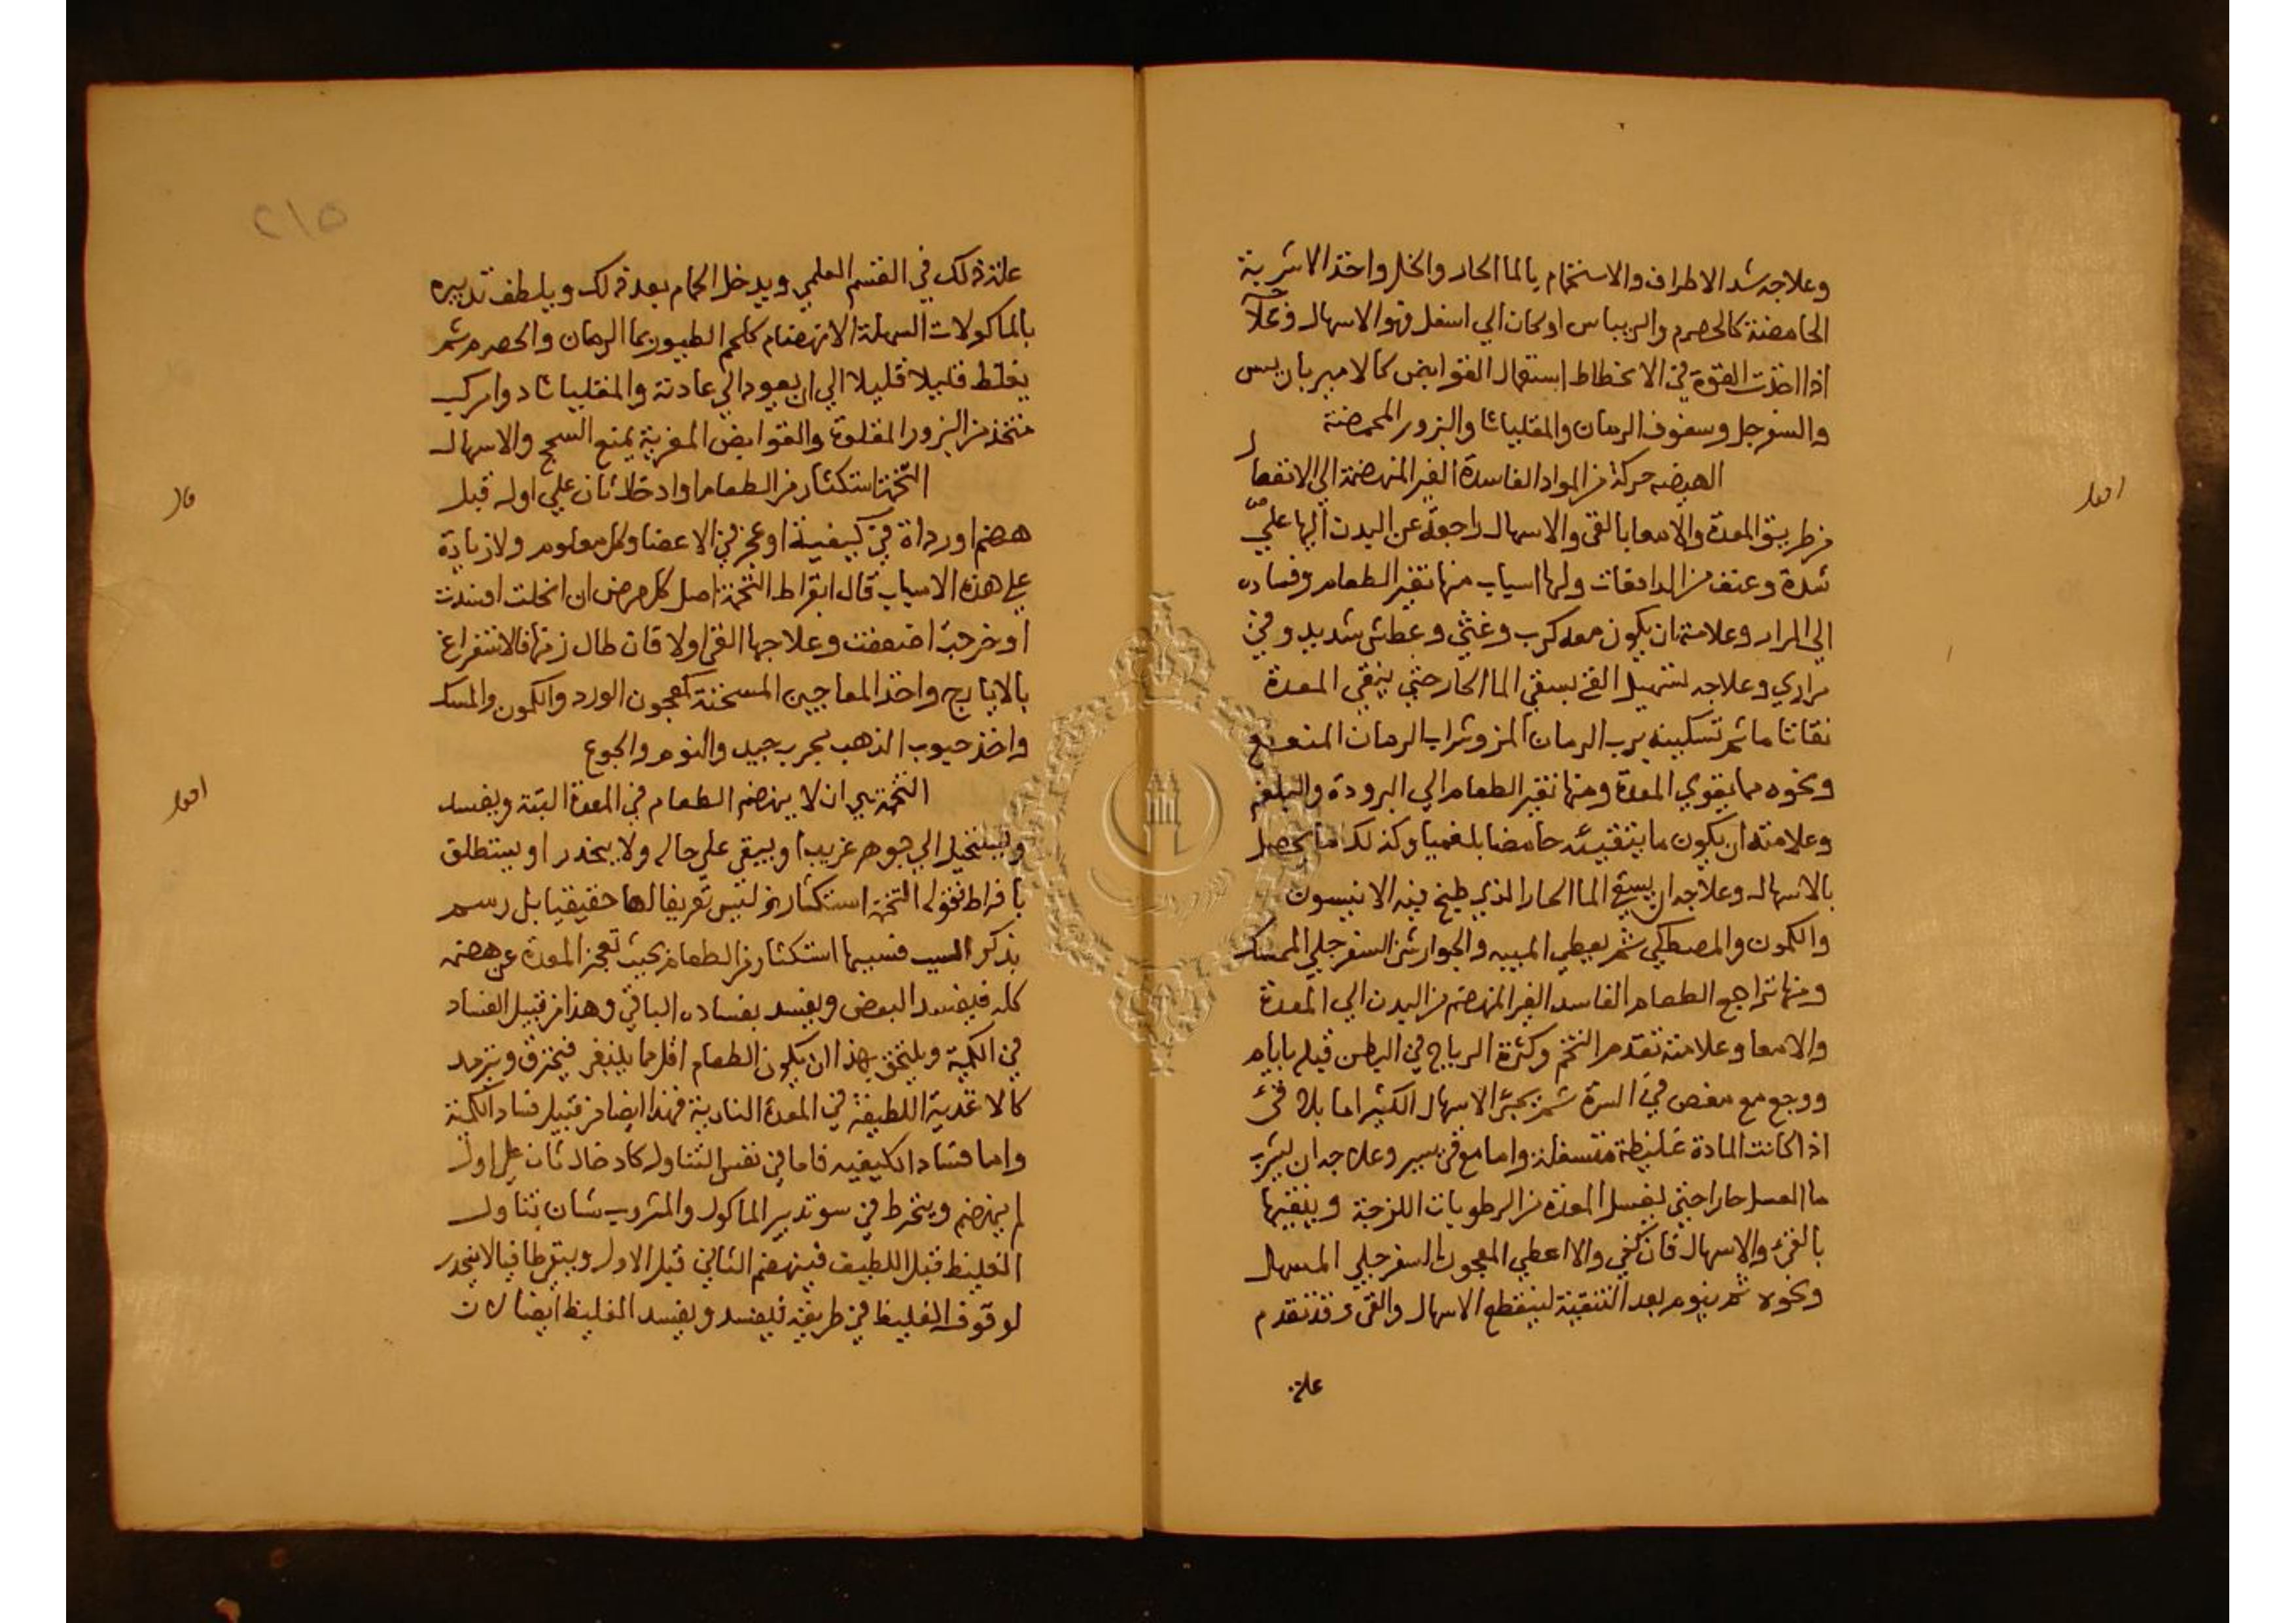 وعلاجه شد الاطراف والاستحمام بالما الحار والخل واخذ الاشربة
الحامضة كالحصرم والريباس او كان الي اسفل فهو الاسهال
اذا اخذت القوة في الانحطاط استعمال القوابض كالامير باريس
والسفرجل وسفوف الرمان والمقلياثا والبزور المحمضة
الهيضه حركة من المواد الفاسدة الغير المنهضمة الي الانفصال
اقول
من طريق المعدة والامعا بالقي والاسهال راجعة عن البدن اليها علي
شدة وعنف من الدافعات ولها اسباب منها تغير الطعام وفساده
الي المرار وعلامته ان يكون معه كرب وغثي وعطش شديد وقي
مراري وعلاجه تسهيل القي بسقي الما الحار حتي ينقي المعدة
نقا تاما ثم تسكينه برب الرمان المز وشراب الرمان المنعنع
ونحوه مما يقوي المعدة ومنها تغير الطعام الي البرودة والبلغم
وعلامته ان يكون ما يتقيئه حامضا بلغميا وكذلك ما يحصل
بالاسهال وعلاجه ان يسقي الما الحار الذي طبخ فيه الانيسون
والكمون والمصطكي ثم يعطي الميبه والجوارشن السفرجلي الممسك
ومنها تراجع الطعام الفاسد الغير المنهضم من البدن الي المعدة
والامعا وعلامته تقدم التخم وكثرة الرياح في البطن قبله بايام
ووجع مع مغص في السرة ثم يجئ الاسهال الكثير اما بلا قئ
اذا كانت المادة غليظة متسفلة واما مع قئ يسير وعلاجه ان يشرب
ما العسل حارا حتي يغسل المعدة من الرطوبات اللزجة وينقيها
بالقئ والاسهال فان كفي والا اعطي المعجون السفرجلي المسهل
ونحوه ثم ينوم بعد التنقية لينقطع الاسهال والقئ وقد تقدم
علة
٢١٥
علة ذلك في القسم العلمي ويدخل الحمام بعد ذلك ويلطف تدبيره
بالماكولات السهلة الانهضام كلحم الطيور بما الرمان والحصرم ثم
يغلظ قليلا قليلا الي ان يعود الي عادته والمقلياثا دوا مركب
متخذ من البزور المقلوة والقوابض المغرية يمنع السحج والاسهال
التخمة استكثار من الطعام او ادخال ثان علي اوله قبل
قال
هضم او رداة في كيفية او عجز في الاعضا وكل معلوم ولا زيادة
علي هذه الاسباب قال ابقراط التخمة اصل كل مرض ان انحلت افسدت
او خرجت اضعفت وعلاجها القي اولا فان طال زمنها فالاستفراغ
بالايارج واخذ المعاجين المسخنة كمعجون الورد والكمون والمسك
واخذ حبوب الذهب مجرب جيد والنوم والجوع
التخمة هي ان لا ينهضم الطعام في المعدة البتة ويفسد
اقول
ويستحيل الي جوهر غريب او يبقي علي حاله ولا ينحدر او يستطلق
بافراط فقوله التخمة استكثار من ليس تعريفا لها حقيقيا بل رسم
بذكر السبب فسببها استكثار من الطعام بحيث تعجز المعدة عن هضمه
كله فيفسد البعض ويفسد بفساده الباقي وهذا من قبيل الفساد
في الكمية ويلتحق بهذا ان يكون الطعام اقل مما ينبغي فيحترق ويترمد
كالاغذية اللطيفة في المعدة النارية فهذا ايضا من قبيل فساد الكمية
واما فساد الكيفيه فاما في نفس التناول كادخال ثان علي اول
لم ينهضم وينخرط في سو تدبير الماكول والمشروب بان تناول
الغليظ قبل اللطيف فينهضم الثاني قبل الاول ويبقي طافيا لا ينحدر
لوقوف الغليظ في طريقه فيفسد ويفسد الغليظ ايضا لان